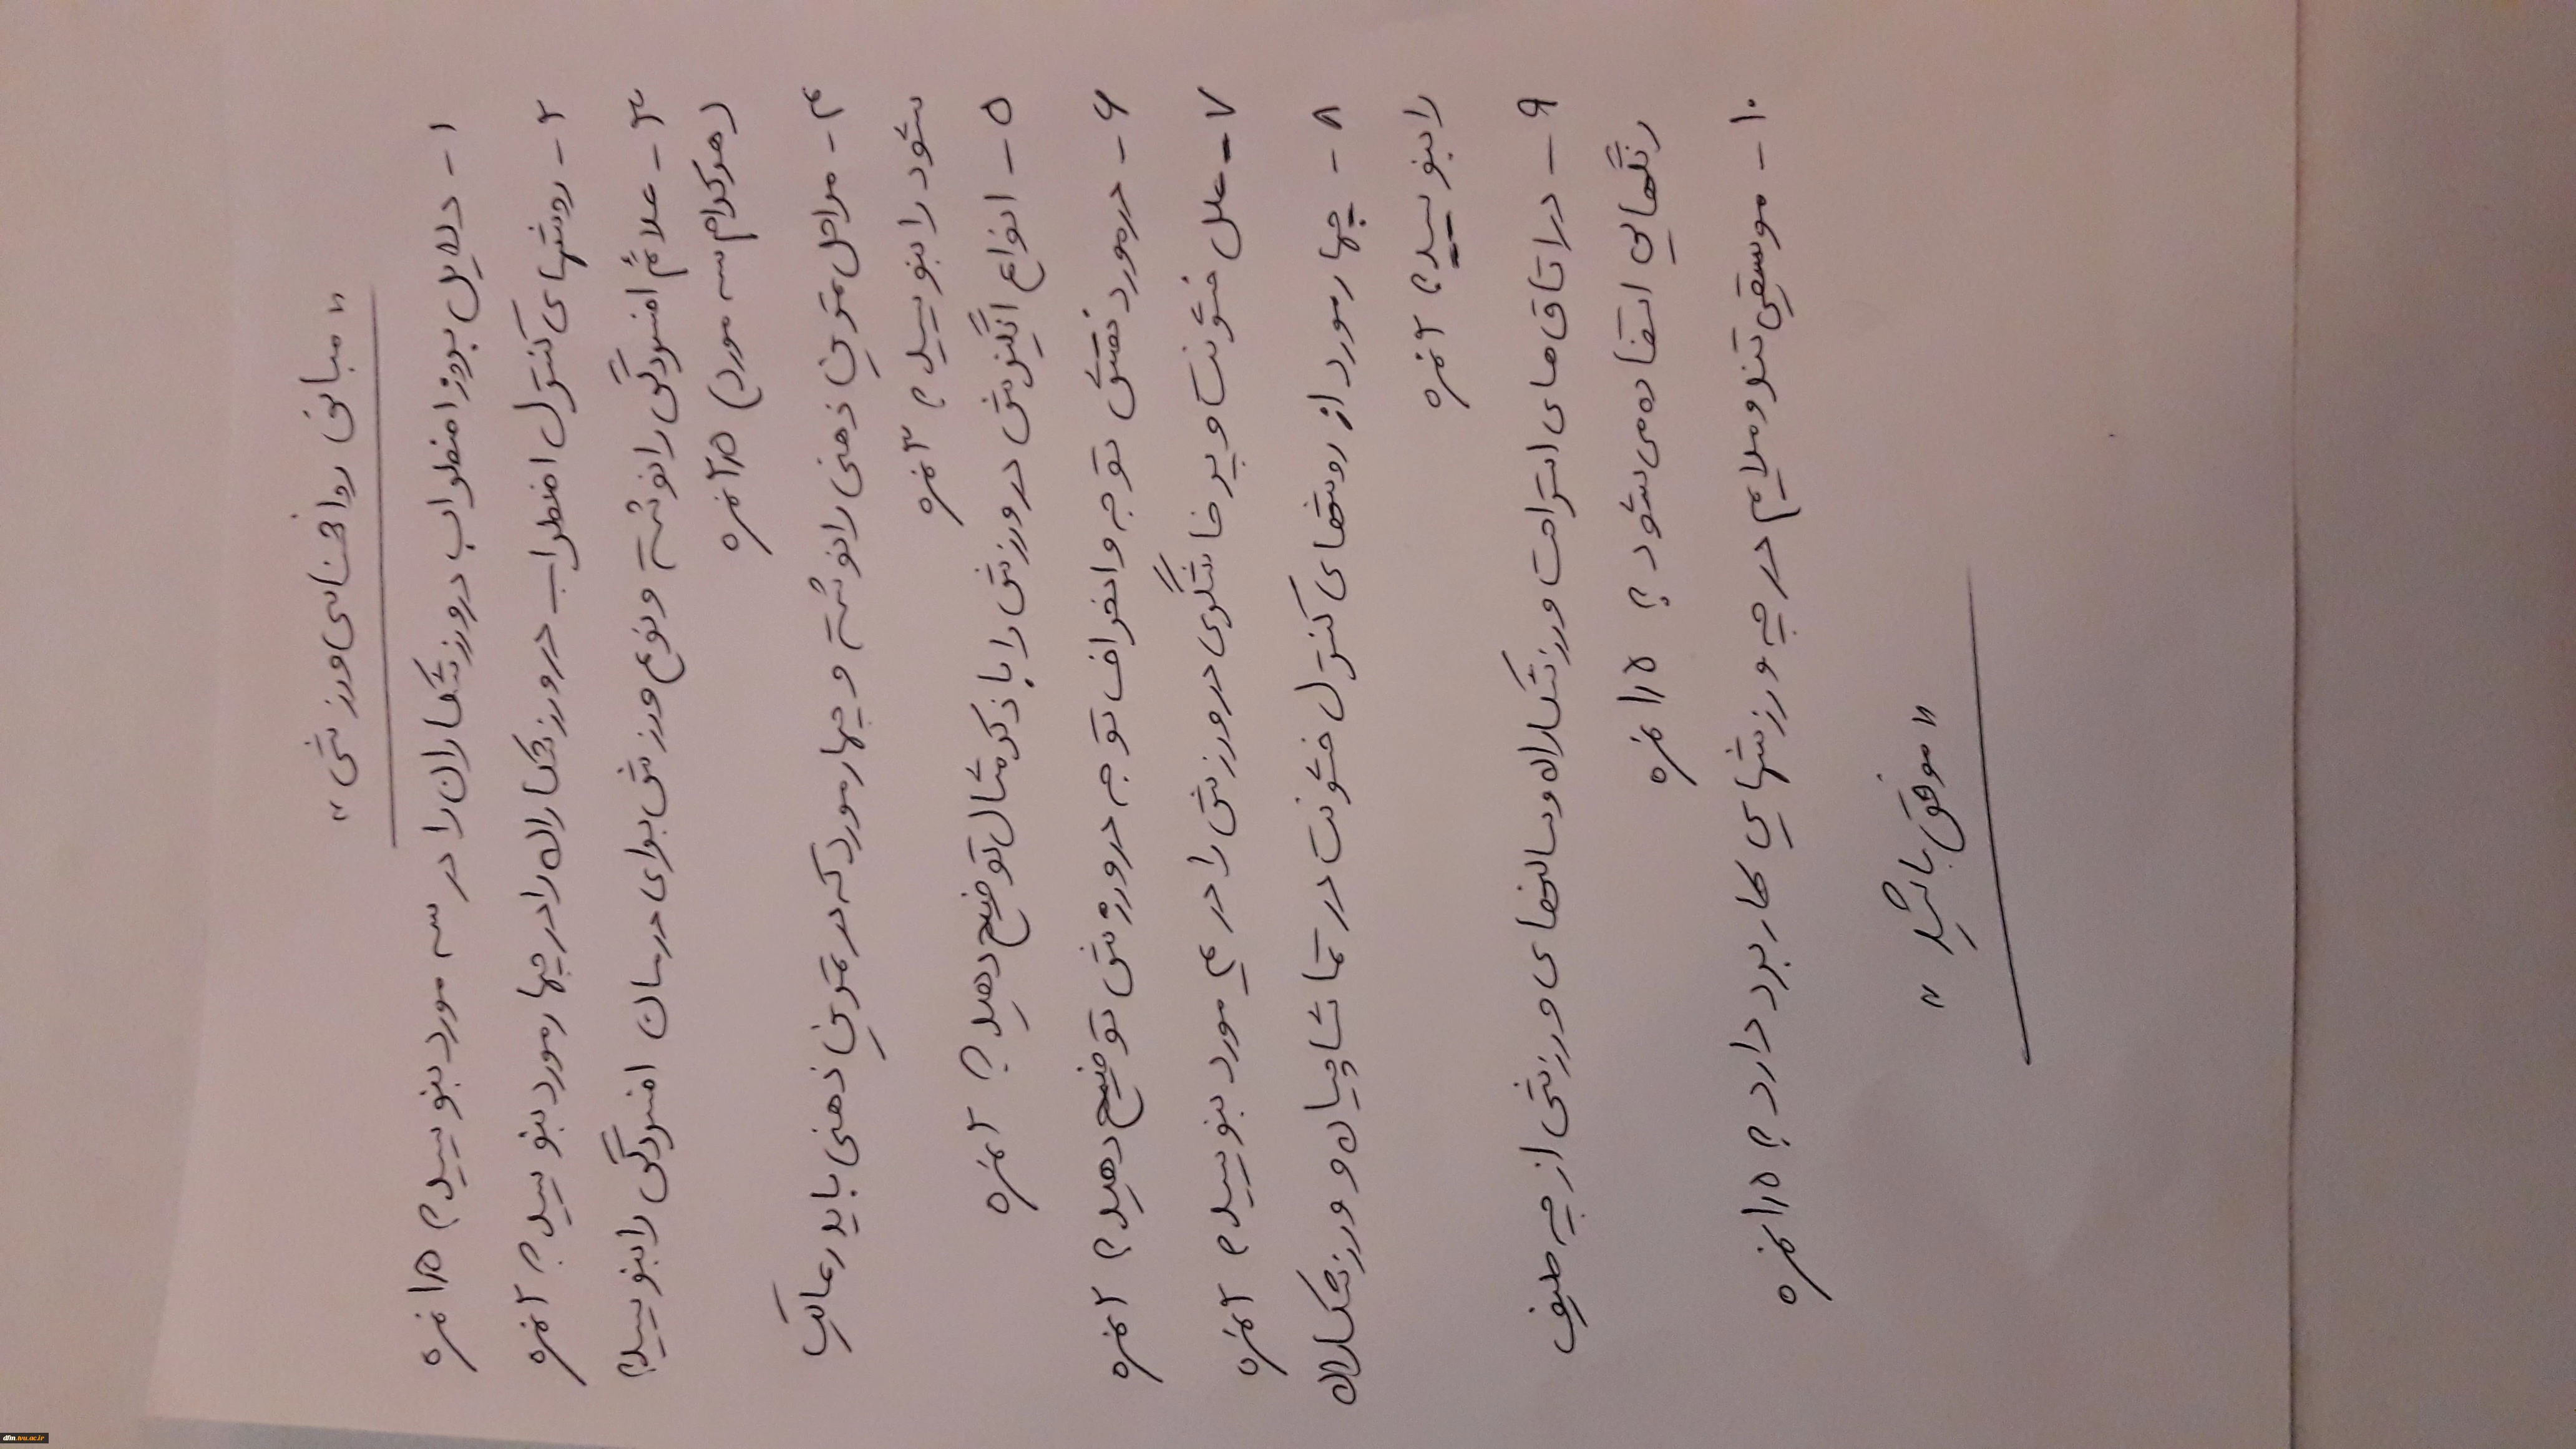 « مبانی روانشناسی ورزشی »
۱- دلایل بروز اضطراب در ورزشکاران را در سه مورد بنویسید؟ ۱/۵ نمره
۲- روشهای کنترل اضطراب در ورزشکاران را در چهار مورد بنویسید؟ ۲ نمره
۳- علائم افسردگی را نوشته و نوع ورزش برای درمان افسردگی را بنویسید؟
(هرکدام سه مورد) ۲/۵ نمره
۴- مراحل تمرین ذهنی را نوشته و چهار مورد که در تمرین ذهنی باید رعایت
شود را بنویسید؟ ۳ نمره
۵- انواع انگیزش در ورزش را با ذکر مثال توضیح دهید؟ ۲ نمره
۶- در مورد نقش توجه و انحراف توجه در ورزش توضیح دهید؟ ۲ نمره
۷- علل خشونت و پرخاشگری در ورزش را در ۴ مورد بنویسید؟ ۲ نمره
۸- چهار مورد از روشهای کنترل خشونت در تماشاچیان و ورزشکاران
را بنویسید؟ ۲ نمره
۹- در اتاق های استراحت ورزشکاران و سالنهای ورزشی از چه طیف
رنگهایی استفاده می شود؟ ۱/۵ نمره
۱۰- موسیقی تند و ملایم در چه ورزشهایی کاربرد دارد؟ ۱/۵ نمره
« موفق باشید »
dfm.tvu.ac.ir